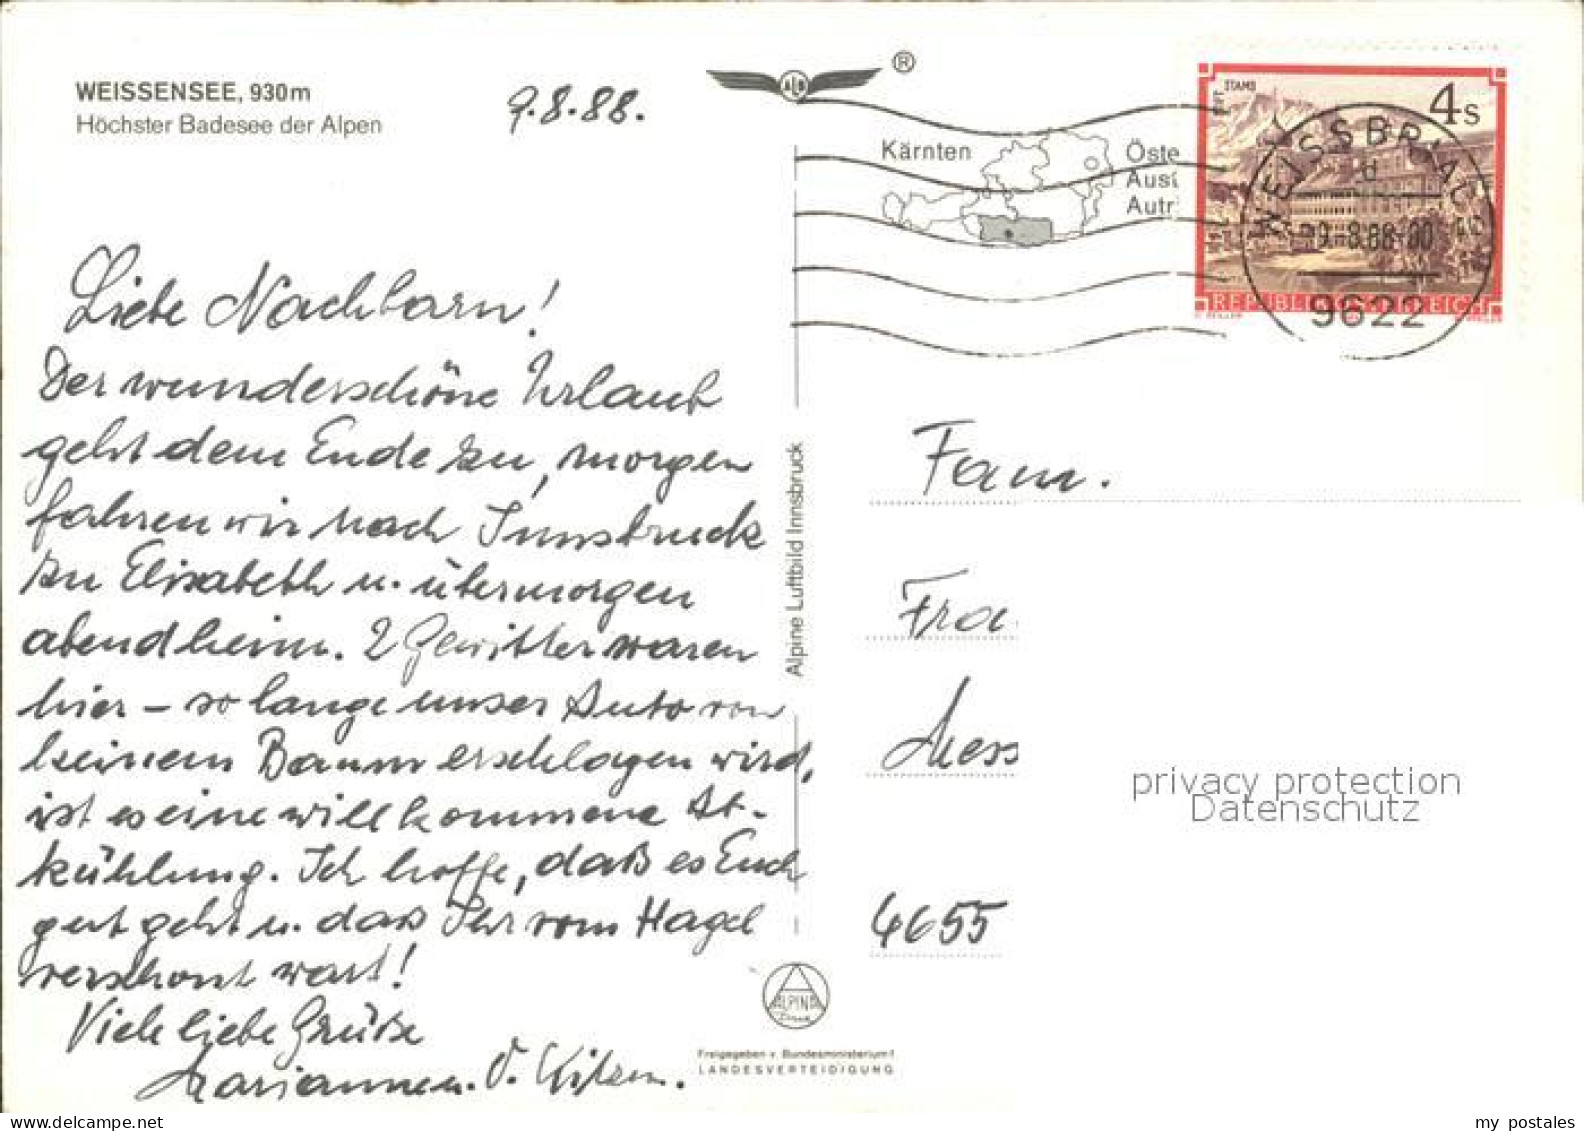 WEISSENSEE, 930m
Höchster Badesee der Alpen
9.8.88.
®
Kärnten
Öste
Ausi
Autr
STAMS
4 s
REPUBLIK ÖSTERREICH
WEISSBRIACH
-9.-8.88-00
9622
Liebe Nachbarn!
Der wunderschöne Urlaub
geht dem Ende zu, morgen
fahren wir nach Innsbruck
zu Elisabeth u. übermorgen
abend heim. 2 Gewitter waren
hier – so lange unser Auto von
keinem Baum erschlagen wird,
ist es eine willkommene Ab-
kühlung. Ich hoffe, daß es Euch
gut geht u. daß Ihr vom Hagel
verschont wart!
Viele liebe Grüße
Marianne u.
Alpine Luftbild Innsbruck
ALPINA
Druck
Freigegeben v. Bundesministerium f.
LANDESVERTEIDIGUNG
Fam.
Fra
Mess
4655
privacy protection
Datenschutz
my postales